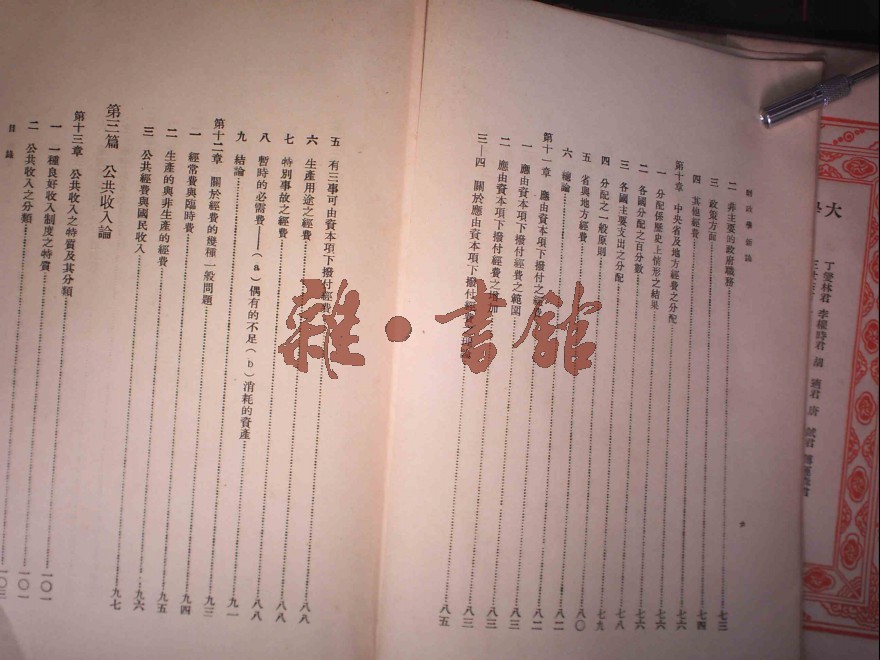 財政學新論
二 非主要的政府職務 七三
三 政策方面
四 其他經費 七四
第十章 中央省及地方經費之分配 七六
一 分配係歷史上情形之結果 七六
二 各國分配之百分數 七六
三 各國主要支出之分配 七八
四 分配之一般原則 七九
五 省與地方經費 八〇
六 總論 八二
第十一章 應由資本項下撥付之經費 八二
一 應由資本項下撥付經費之範圍 八三
二 應由資本項下撥付經費之增加 八三
三—四 關於應由資本項下撥付經費之理論 八五
五 有三事可由資本項下撥付經費 八八
六 生產用途之經費 八八
七 特別事故之經費 八八
八 暫時的必需費——(a)偶有的不足(b)消耗的資產 八八
九 結論 九一
第十二章 關於經費的幾種一般問題 九三
一 經常費與臨時費 九四
二 生產的與非生產的經費 九五
三 公共經費與國民收入 九六
第三篇 公共收入論 九七
第十三章 公共收入之特質及其分類
一 一種良好收入制度之特質 一〇一
二 公共收入之分類 一〇一
目錄 一〇三
大學
丁燮林君 李權時君 胡適君 唐鉞君
雜·書館